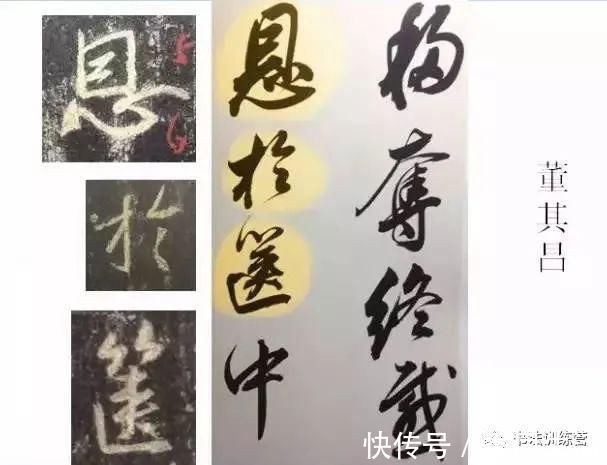 董其昌
移奪終感
恩於篋中
恩
於
篋
快传号 / 书法训练营